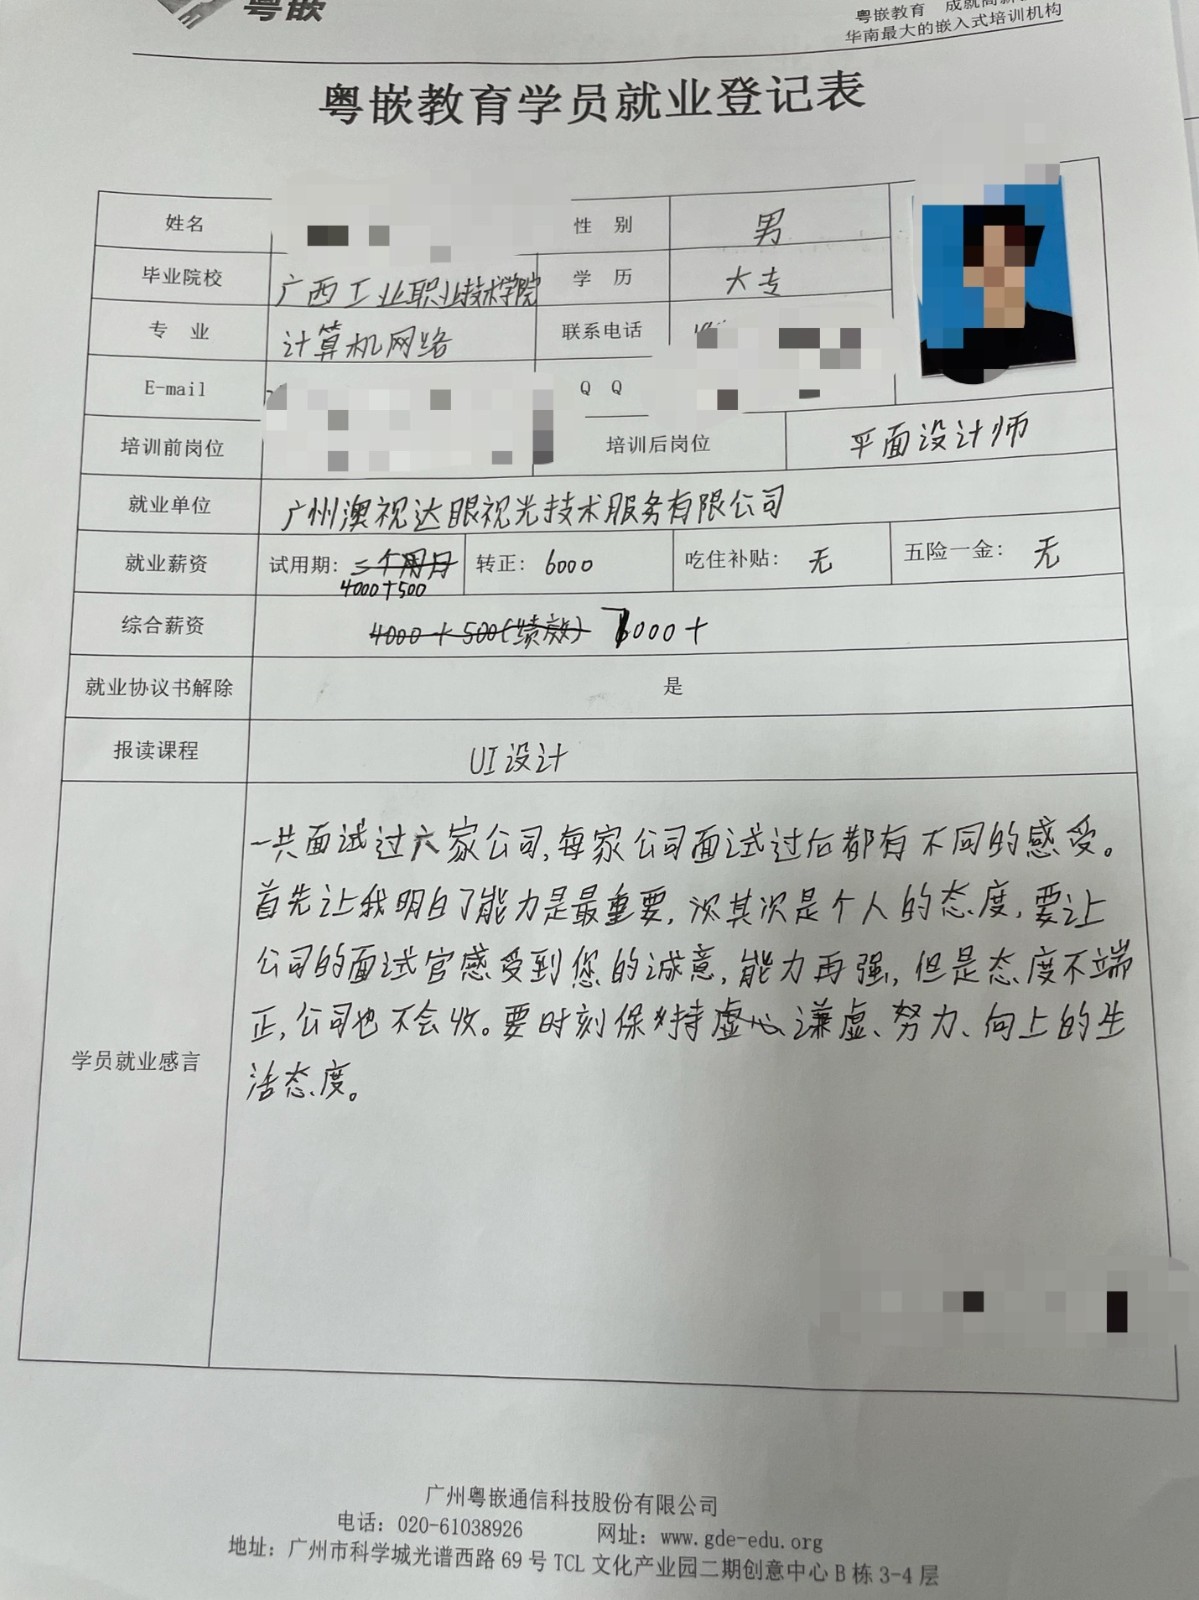 粤嵌
粤嵌教育
华南最大的嵌入式培训机构
粤嵌教育学员就业登记表
姓名 性 别 男
毕业院校 广西工业职业技术学院 学 历 大专
专 业 计算机网络 联系电话
E-mail Q Q
培训前岗位 培训后岗位 平面设计师
就业单位 广州澳视达眼视光技术服务有限公司
就业薪资 试用期: 三个用月 转正: 6000 吃住补贴: 无 五险一金: 无
4000+500
综合薪资 4000+500(绩效) 000+
就业协议书解除 是
报读课程 UI设计
一共面试过六家公司,每家公司面试过后都有不同的感受。
首先让我明白了能力是最重要,次其次是个人的态度,要让
公司的面试官感受到您的诚意,能力再强,但是态度不端
正,公司也不会收。要时刻保持虚心谦虚、努力、向上的生
活态度。
学员就业感言
广州粤嵌通信科技股份有限公司
电话: 020-61038926 网址: www.gde-edu.org
地址: 广州市科学城光谱西路69号TCL文化产业园二期创意中心B栋3-4层